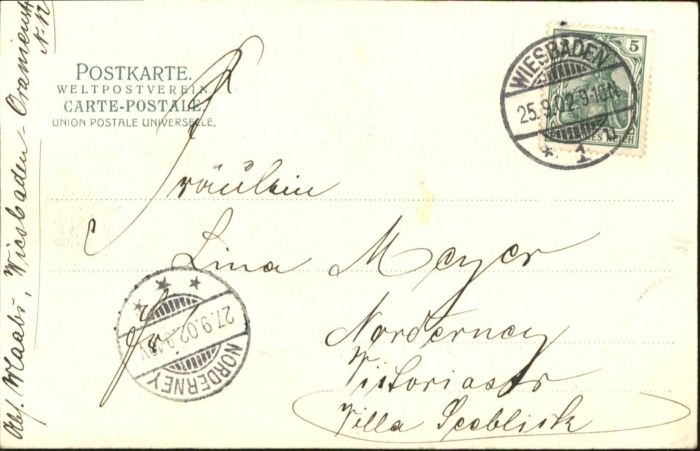 POSTKARTE.
WELTPOSTVEREIN
CARTE-POSTALE
UNION POSTALE UNIVERSELLE.
5
WIESBADEN
25.9.02.9-10N.
* 1
Fräulein
Lina Meyer
Norderney
Victoriastr
Villa Seeblick
27.9.02
NORDERNEY
Wiesbaden - Oranienstr
N. 12